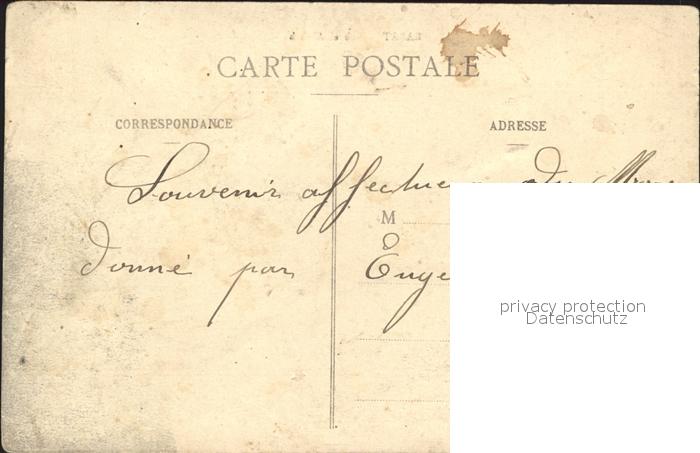 CARTE POSTALE
CORRESPONDANCE
ADRESSE
Souvenir affectueux du
M
donné par Euge
privacy protection
Datenschutz